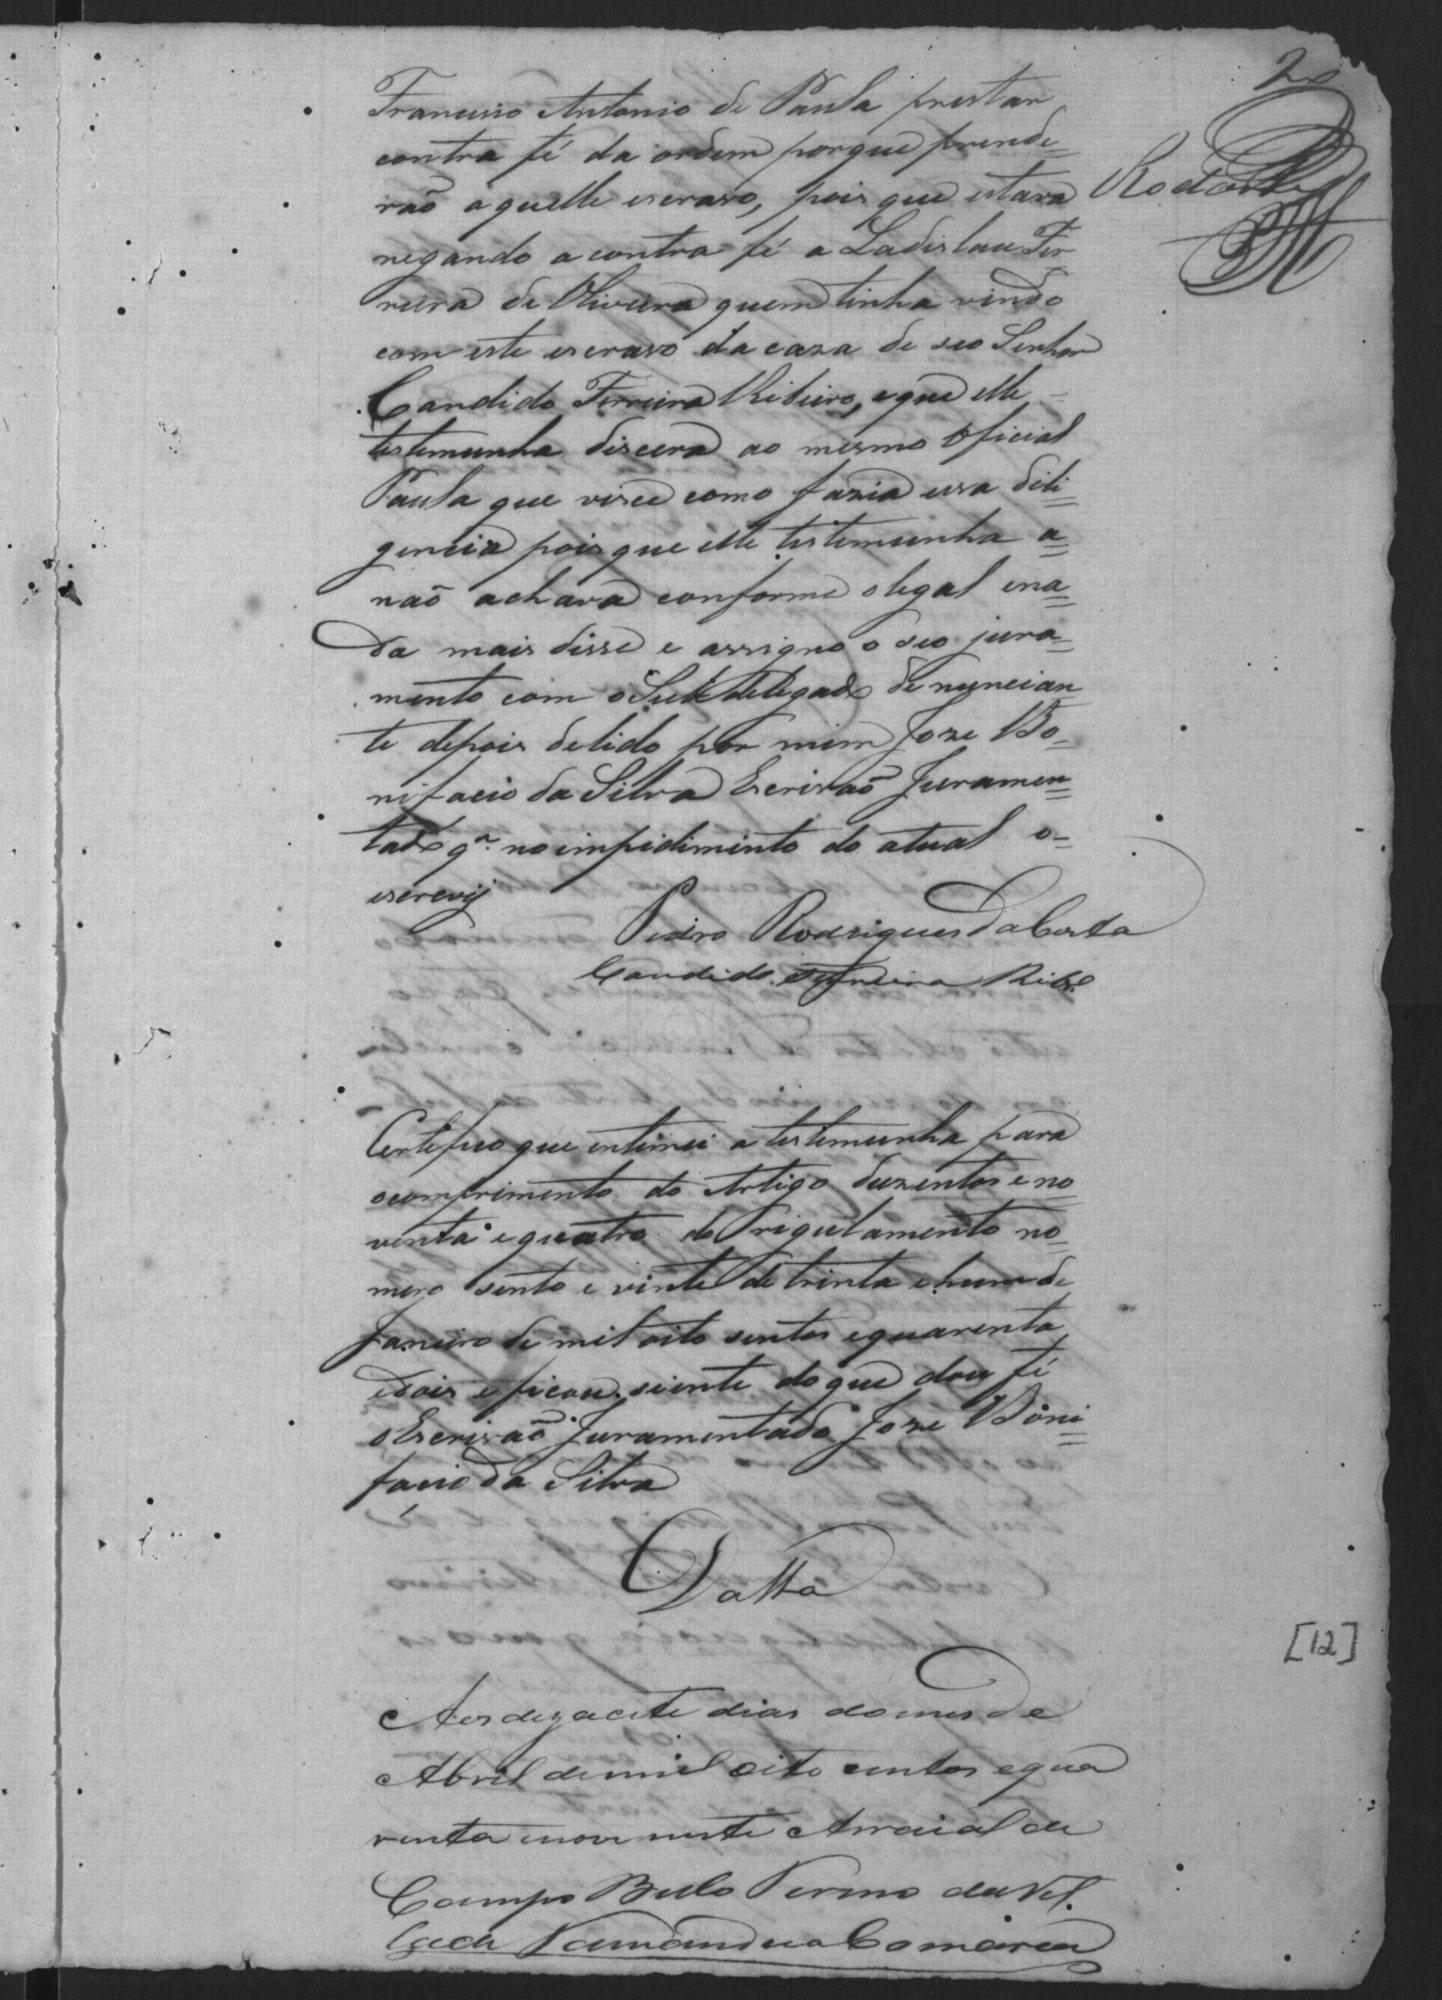 2
Rodarte
Francisco Antonio de Paula prestar
contra fé da ordem porque prende=
rão aquelle escravo, pois que estava
negando a contra fé a Ladislau Fer
reira de Oliveira quem tinha vindo
com este escravo da caza de seo Senhor
Candido Ferreira Ribeiro, e que elle
testemunha discera ao mesmo Oficial
Paula que visce como fazia essa deli=
gencia pois que elle testemunha a=
não achava conforme o legal ena=
da mais disse e assigno o seo jura=
mento com o Subdelegado denuncian
te depois delido por mim Joze Bo=
nifacio da Silva Escrivão Juramen=
tado q. no impidimento do atual o=
escrevij
Pedro Rodrigues da Costa
Candido Ferreira Ribr.
Certifico que intimei a testemunha para
o comprimento do Artigo duzentos e no=
venta e quatro do rigulamento no=
mero sento e vinte de trinta e hum de
Janeiro de mil oito sentos e quarenta
edois e ficou siente do que dou fé
o Escrivão Juramentado Joze Boni=
facio da Silva
Datta
Aos dezacete dias do mes de
Abril de mil oito centos e qua
renta e nove neste Arraial de
Campo Bello Termo da Vil.
la de Tamanduá Comarca
[12]